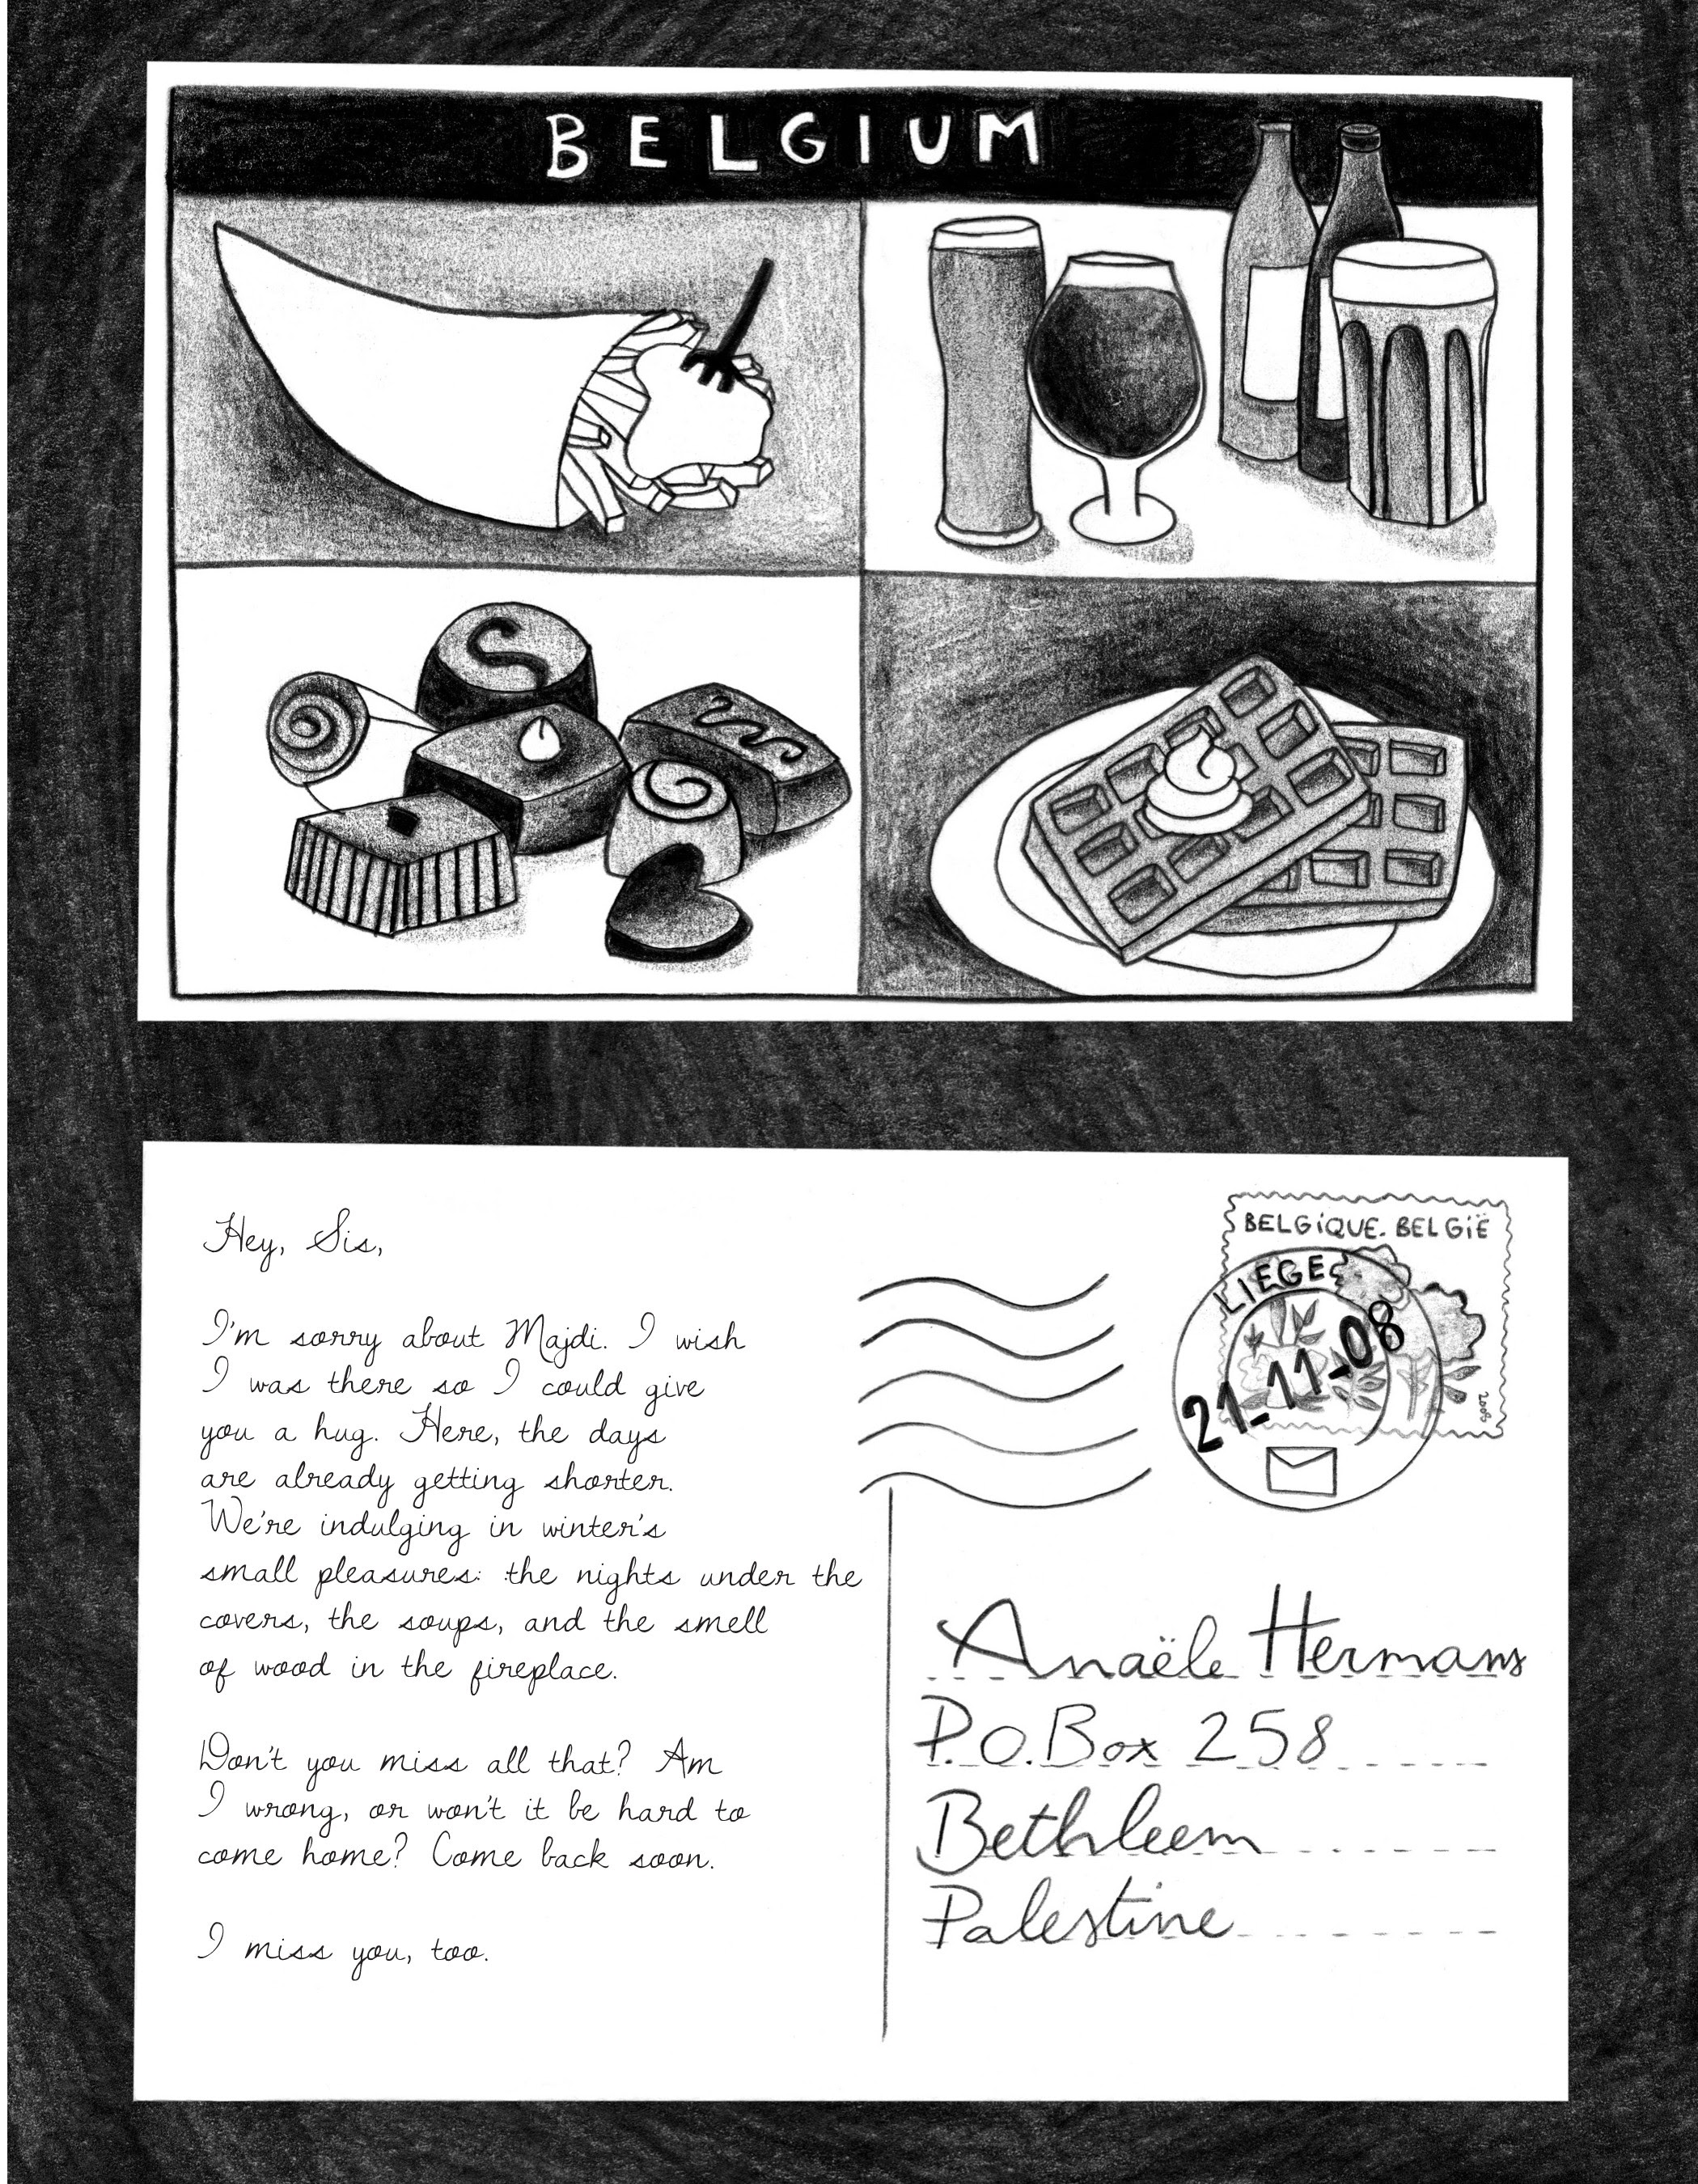 BELGIUM
Hey, Sis,
I'm sorry about Majdi. I wish
I was there so I could give
you a hug. Here, the days
are already getting shorter.
We're indulging in winter's
small pleasures: the nights under the
covers, the soups, and the smell
of wood in the fireplace.
Don't you miss all that? Am
I wrong, or won't it be hard to
come home? Come back soon.
I miss you, too.
BELGiQUE. BELGiË
LIEGE
21-11-08
2008
Anaële Hermans
P.O.Box 258
Bethleem
Palestine